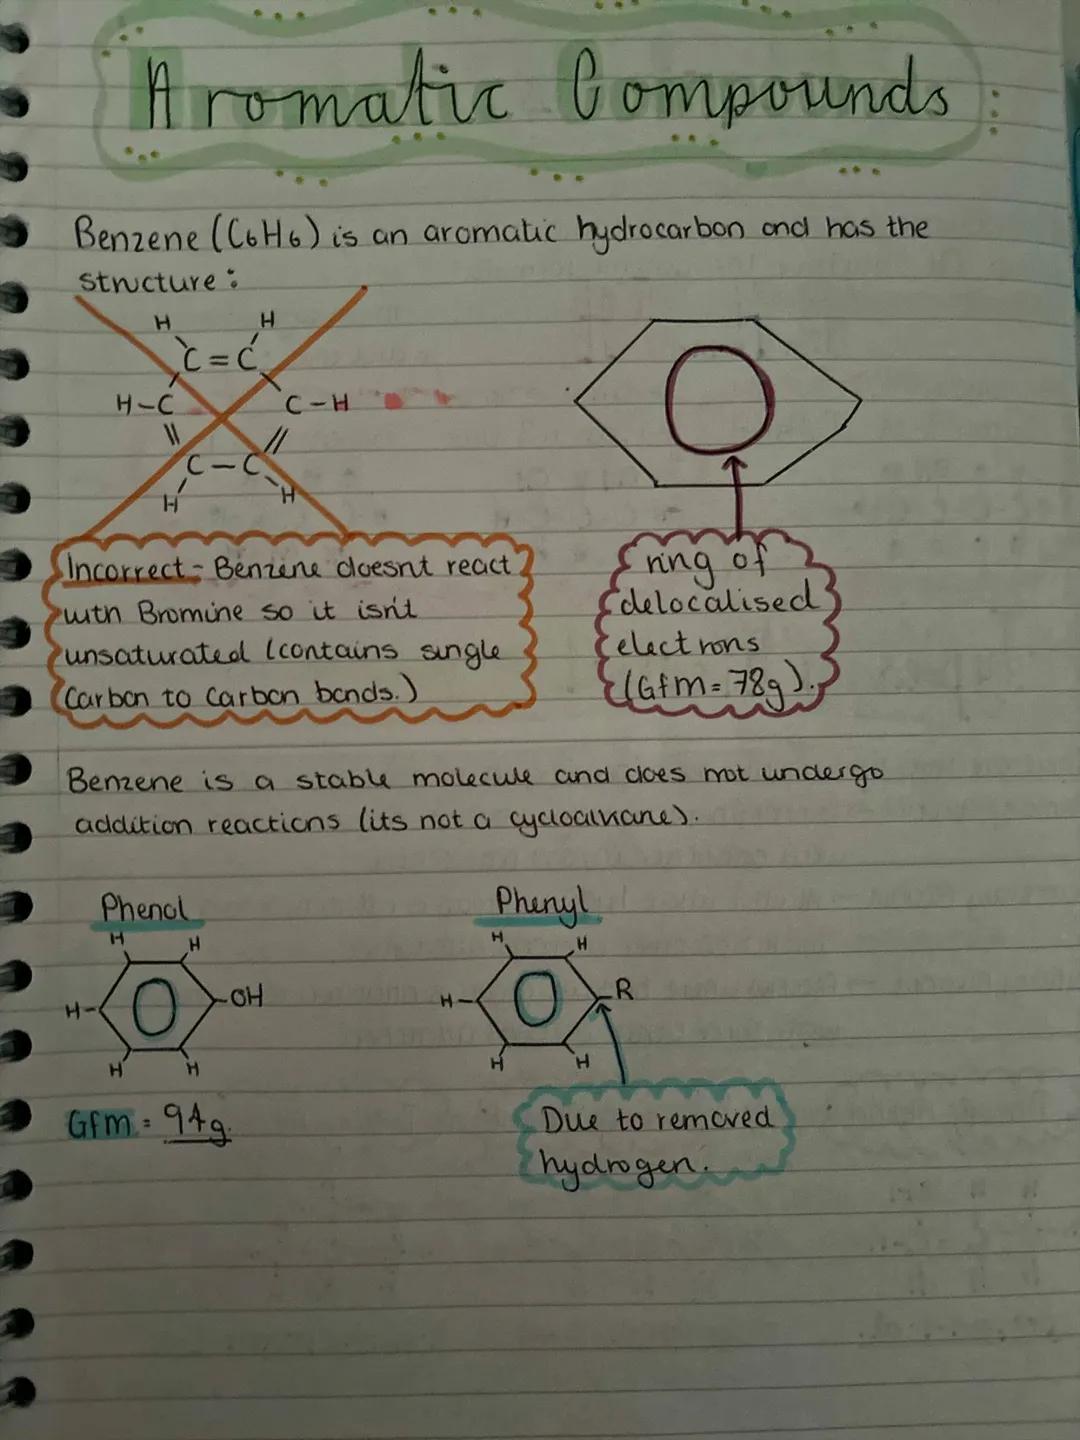 Aromatic Compounds
Benzene (C6H6) is an aromatic hydrocarbon and has the
structure:
H H
C = C
H-C C-H
C - C
H H
Incorrect - Benzene doesnt react
with Bromine so it isn't
unsaturated (contains single
Carbon to Carbon bonds.)
ring of
delocalised
electrons
(Gfm = 78g).
Benzene is a stable molecule and does not undergo
addition reactions (its not a cycloalkane).
Phenol
H H
H- -OH
H H
Gfm = 94g.
Phenyl
H H
H- -R
H H
Due to removed
hydrogen.